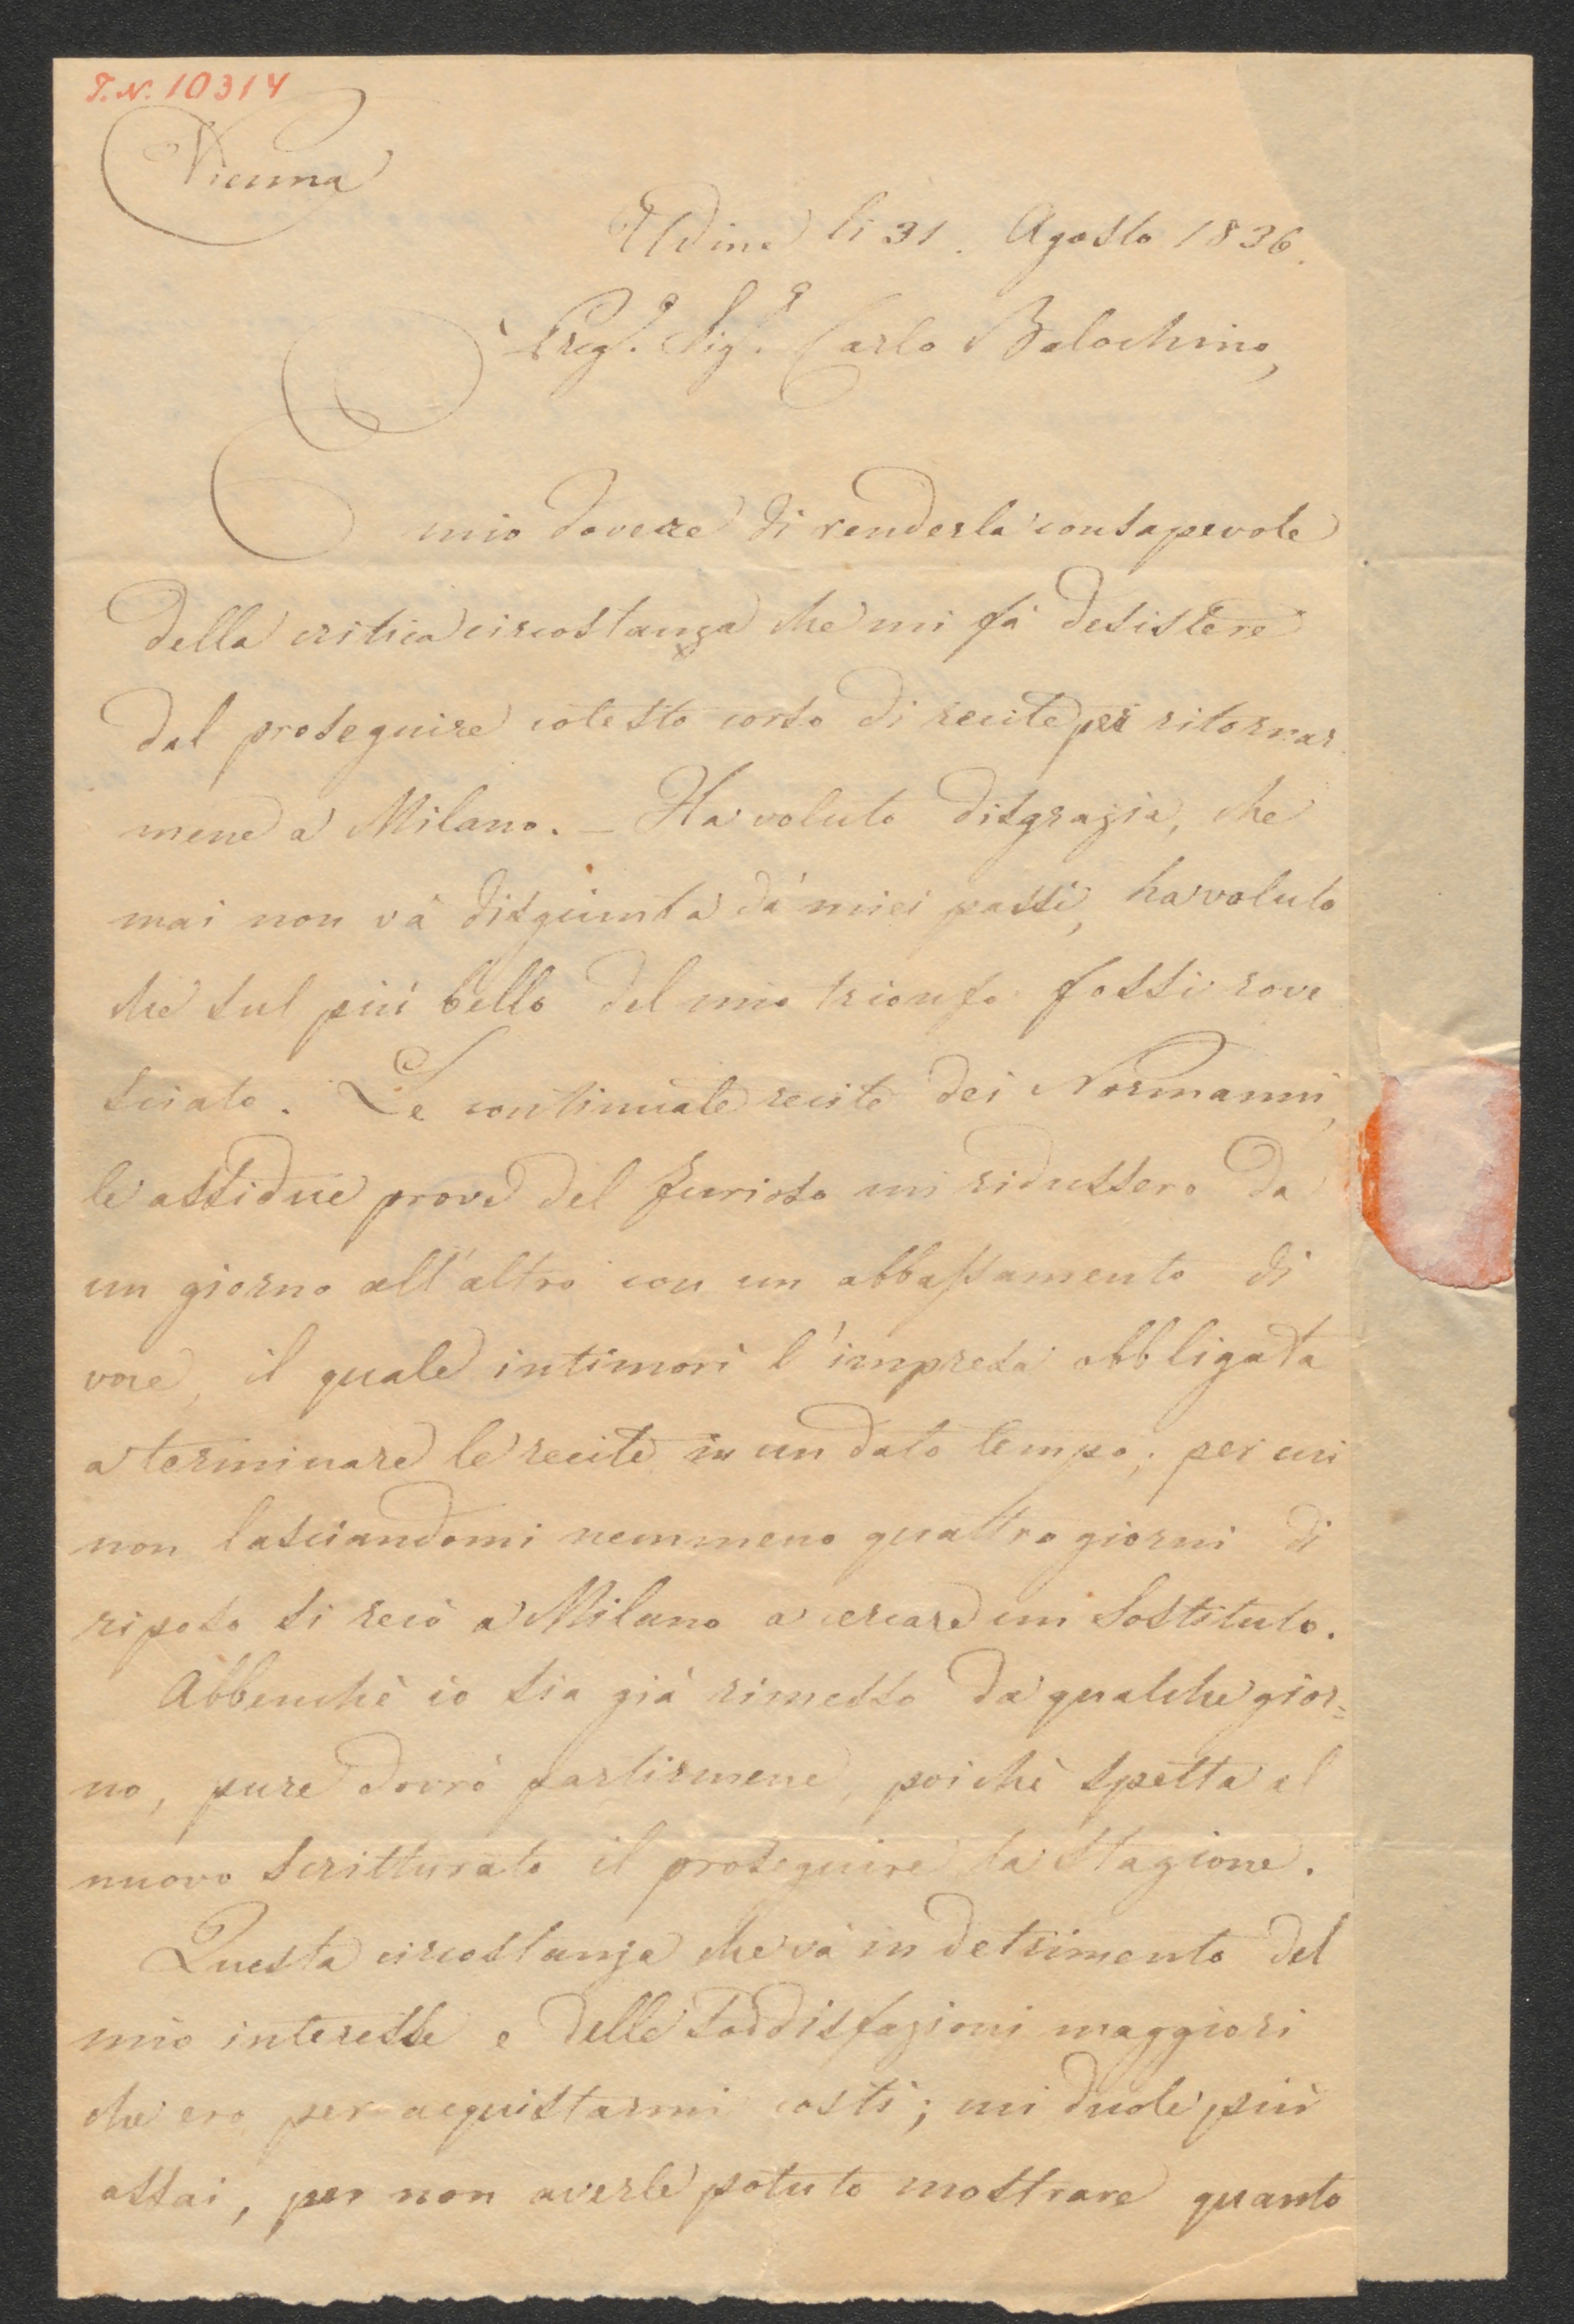 I.N. 10314
Vienna
Udine li 31. Agosto 1836.
Preg.º Sig.º Carlo Balochino,
È mio dovere di renderla consapevole
della critica circostanza che mi fà desistere
dal proseguire cotesto corso di recite per ritornar
mene a Milano. – Ha voluto disgrazia, che
mai non và disgiunta dà miei passi, ha voluto
che sul più bello del mio trionfo fossi rove
sciato. Le continuate recite dei Normanni,
le assidue prove del Furioso mi ridussero da
un giorno all'altro con un abbassamento di
voce, il quale intimorì l'impresa obbligata
a terminare le recite in un dato tempo; per cui
non lasciandomi nemmeno quattro giorni di
riposo si recò a Milano a cercare un Sostituto.
Abbenchè io sia già rimesso da qualche gior=
no, pure dovrò partirmene, poichè spetta al
nuovo scritturato il proseguire la Stagione.
Questa circostanza che và in detrimento del
mio interesse e delle soddisfazioni maggiori
che ero per acquistarmi costì; mi duole più
assai, per non averle potuto mostrare quanto